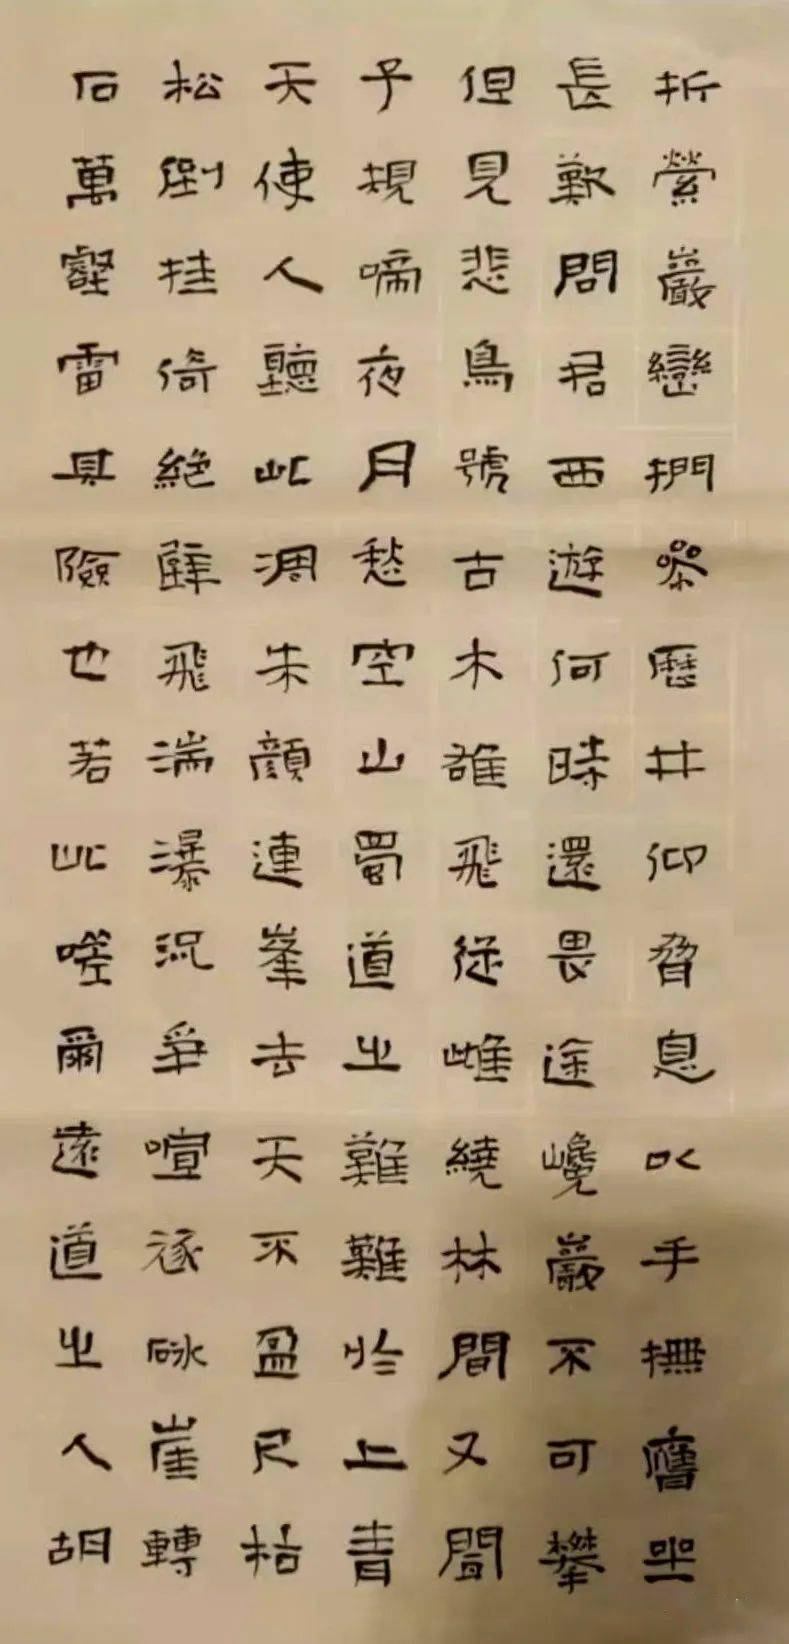 折縈巖巒捫參歷井仰脅息以手撫膺坐
長歎問君西遊何時還畏途巉巖不可攀
但見悲鳥號古木雄飛從雌繞林間又聞
子規啼夜月愁空山蜀道之難難於上青
天使人聽此凋朱顏連峯去天不盈尺枯
松倒挂倚絕壁飛湍瀑況爭喧豗砯崖轉
石萬壑雷其險也若此嗟爾遠道之人胡